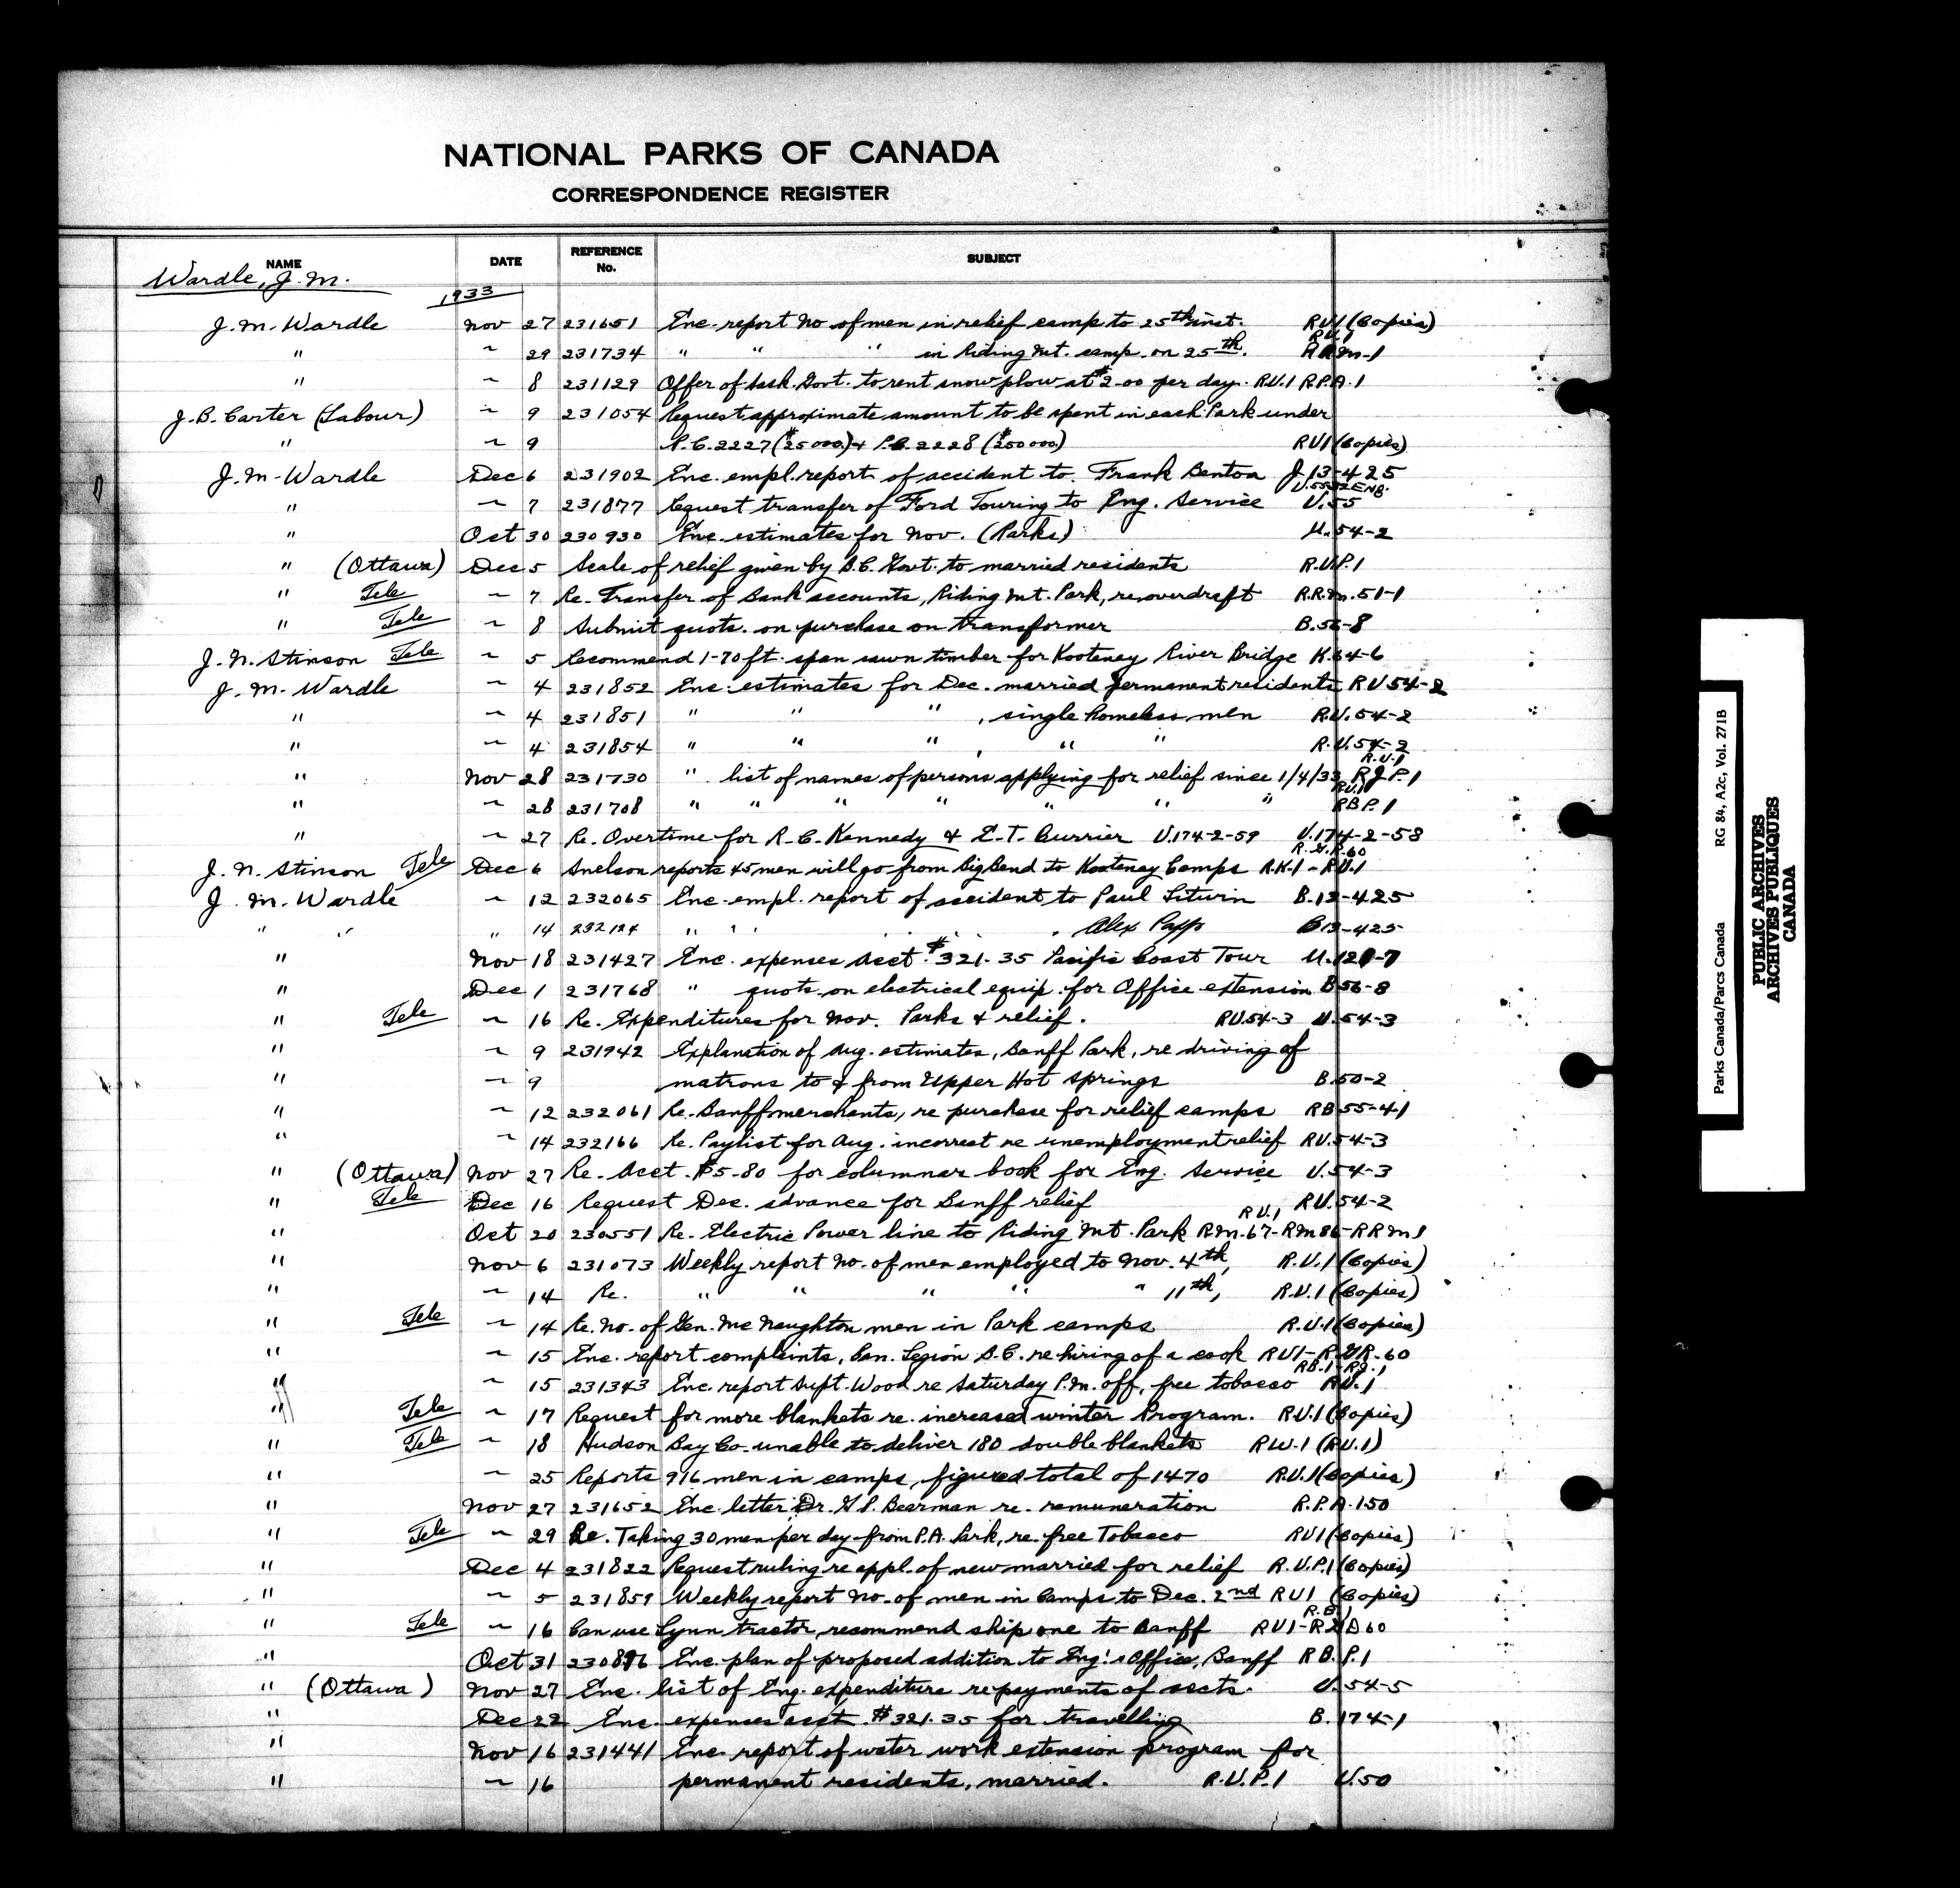 NATIONAL PARKS OF CANADA
CORRESPONDENCE REGISTER
NAME DATE REFERENCE No. SUBJECT
Wardle, J. M.
1933
J. M. Wardle Nov 27 231651 Enc. report No of men in relief camp to 25th inst. RU1 (Copies)
" ~ 29 231734 " " " in Riding Mt. camp on 25th. RU.1 RRM-1
" ~ 8 231129 Offer of Sask. Govt. to rent snow plow at $2.00 per day. R.U.1 R.P.A.1
J. B. Carter (Labour) ~ 9 231054 Request approximate amount to be spent in each Park under
" ~ 9 P.C. 2227 ($25000.) + P.C. 2228 ($250000.) RU1 (Copies)
J. M. Wardle Dec 6 231902 Enc. empl. report of accident to Frank Benton J 13-425
" ~ 7 231877 Request transfer of Ford Touring to Eng. Service U.55
" Oct 30 230930 Enc. estimates for Nov. (Parks) U.54-2
" (Ottawa) Dec 5 Scale of relief given by B.C. Govt. to married residents R.U.P.1
" Tele ~ 7 Re. Transfer of Bank accounts, Riding Mt. Park, re overdraft R.R.M. 51-1
" Tele ~ 8 Submit quots. on purchase on transformer B.56-8
J. N. Stinson Tele ~ 5 Recommend 1-70 ft. span sawn timber for Kootenay River Bridge K.64-6
J. M. Wardle ~ 4 231852 Enc. estimates for Dec. married permanent residents RU 54-2
" ~ 4 231851 " " " , single homeless men R.U. 54-2
" ~ 4 231854 " " " , " " R.U. 54-2
" Nov 28 231730 " list of names of persons applying for relief since 1/4/33 R.U.1 RJP.1
" ~ 28 231708 " " " " " " " RU.1 RBP.1
" ~ 27 Re. Overtime for R. C. Kennedy & E. T. Currier U.174-2-59 U.174-2-58
J. N. Stinson Tele Dec 6 Snelson reports 45 men will go from Big Bend to Kootenay Camps R.K.1 - RU.1
J. M. Wardle ~ 12 232065 Enc. empl. report of accident to Paul Litwin B.13-425
" " " 14 232124 " " . . . Alex Papp B13-425
" Nov 18 231427 Enc. expenses acct. $321.35 Pacific Coast Tour
" Dec 1 231768 " quots. on electrical equip. for Office extension B56-8
" Tele ~ 16 Re. Expenditures for Nov. Parks & relief. RU.54-3 U.54-3
" ~ 9 231942 Explanation of Aug. estimates, Banff Park, re driving of
" ~ 9 matrons to & from Upper Hot Springs B.50-2
" ~ 12 232061 Re. Banff merchants, re purchase for relief camps RB55-4-1
" ~ 14 232166 Re. Paylist for Aug. incorrect re unemployment relief RU.54-3
" (Ottawa) Nov 27 Re. Acct. $5.80 for columnar book for Eng. Service U.54-3
" Tele Dec 16 Request Dec. advance for Banff relief RU.54-2
" Oct 20 230551 Re. Electric Power line to Riding Mt. Park RU.1 RM-67-RM86-RRM1
" Nov 6 231073 Weekly report No. of men employed to Nov. 4th, R.U.1 (Copies)
" ~ 14 Re. " " " " " 11th, R.U.1 (Copies)
" Tele ~ 14 Re. No. of Gen. McNaughton men in Park camps R.U.1 (Copies)
" ~ 15 Enc. report complaints, Can. Legion B.C. re hiring of a cook RU1-R.GR.60
" ~ 15 231343 Enc. report Supt. Wood re Saturday P.M. off, free tobacco RB.1-RJ.1 RU.1
" Tele ~ 17 Request for more blankets re. increased winter Program. R.U.1 (Copies)
" Tele ~ 18 Hudson Bay Co. unable to deliver 180 double blankets RW.1 (RU.1)
" ~ 25 Reports 916 men in camps, figured total of 1470 R.U.1 (Copies)
" Nov 27 231652 Enc. letter Dr. G. P. Bearman re. remuneration R.P.A.150
" Tele ~ 29 Re. Taking 30 men per day from P.A. Park, re. free Tobacco RU1 (Copies)
" Dec 4 231822 Request ruling re appl. of new married for relief R.U.P.1 (Copies)
" ~ 5 231859 Weekly report No. of men in Camps to Dec. 2nd RU1 (Copies)
" Tele ~ 16 Can use Lynn tractor, recommend ship one to Banff
" Oct 31 Enc. plan of proposed addition to Eng's Office, Banff RB.P.1
" (Ottawa) Nov 27 Enc. list of Eng. expenditure re payments of accts. U.54-5
" Dec 22 Enc. expenses acct. $321.35 for travelling B.174-1
" Nov 16 231441 Enc. report of water work extension program for
" ~ 16 permanent residents, married. R.U.P.1 U.50
Parks Canada/Parcs Canada RG 84, A2c, Vol. 271B
PUBLIC ARCHIVES
ARCHIVES PUBLIQUES
CANADA